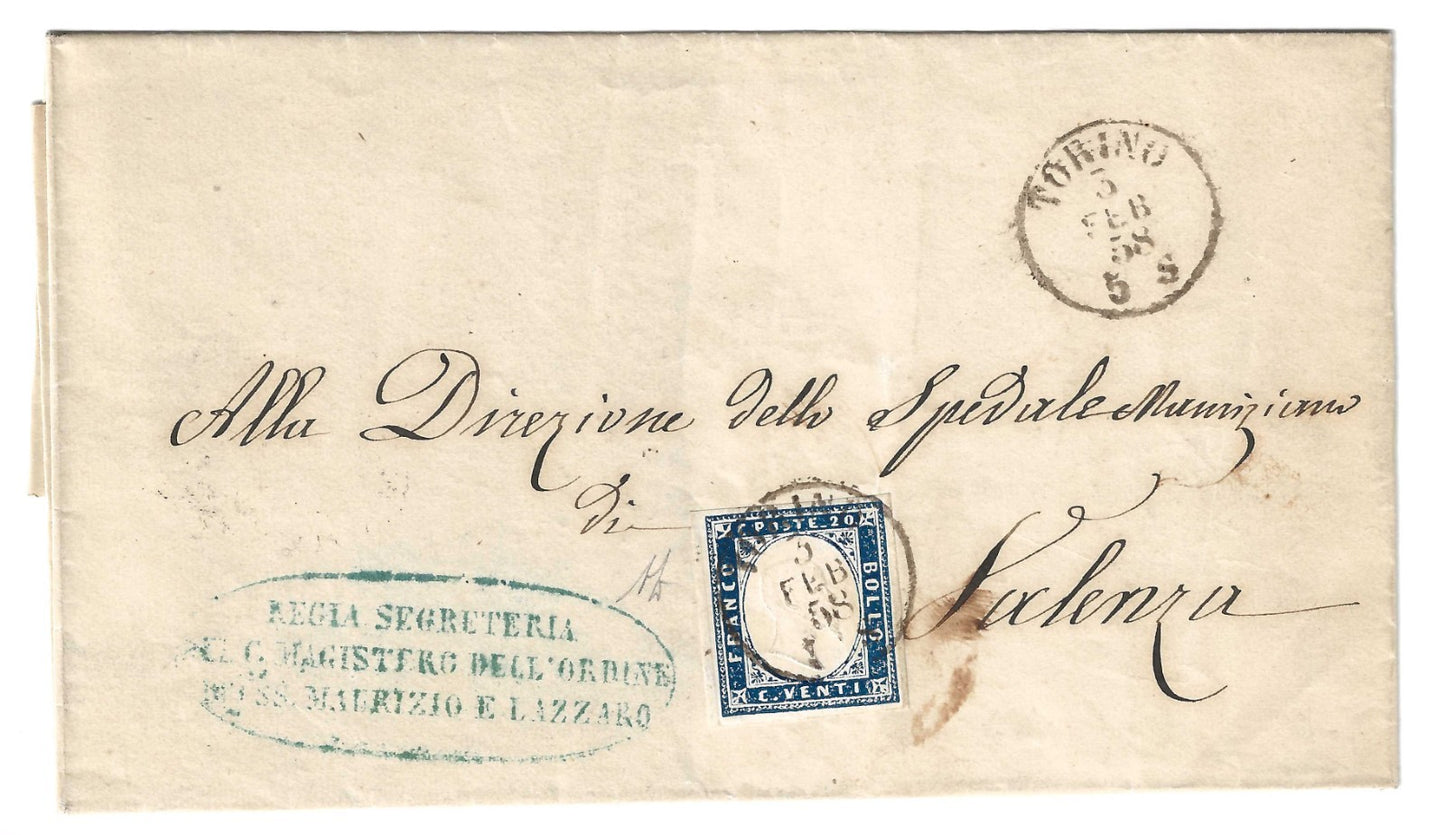 TORINO
5
FEB
58
5 S
Alla Direzione dello Spedale Mauriziano
di
Valenza
TORINO
5
FEB
58
C. POSTE. 20.
FRANCO
BOLLO
C. VENTI
REGIA SEGRETERIA
MAGISTERO DELL'ORDINE
SS. MAURIZIO E LAZZARO